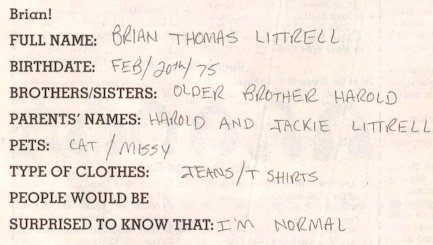 Brian!
FULL NAME: BRIAN THOMAS LITTRELL
BIRTHDATE: FEB/20th/75
BROTHERS/SISTERS: OLDER BROTHER HAROLD
PARENTS' NAMES: HAROLD AND JACKIE LITTRELL
PETS: CAT/MISSY
TYPE OF CLOTHES: JEANS/T SHIRTS
PEOPLE WOULD BE
SURPRISED TO KNOW THAT: I'M NORMAL